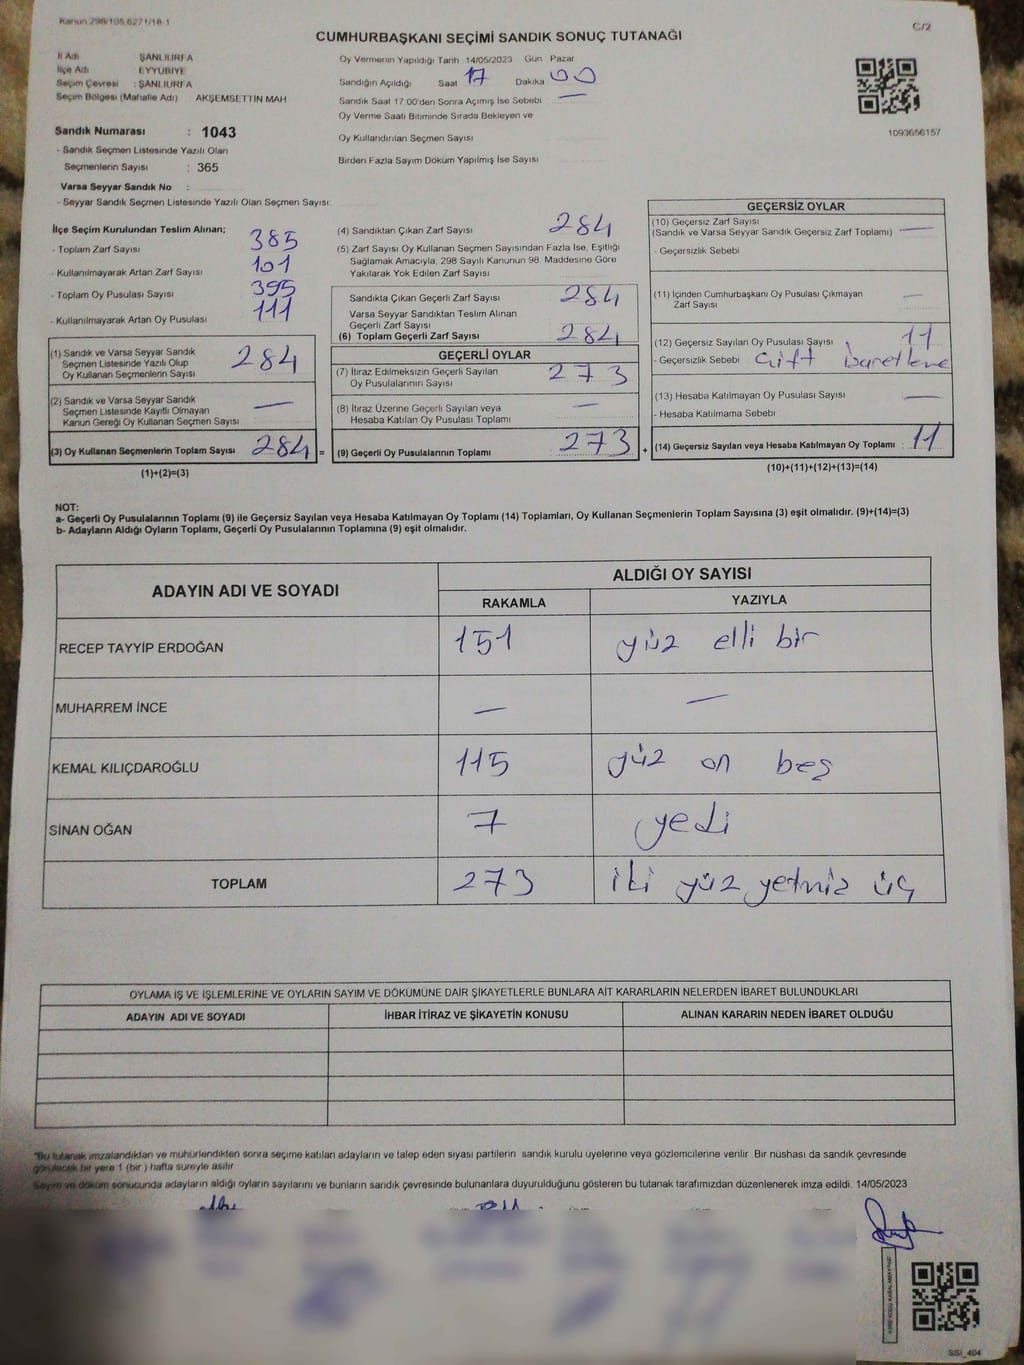 Kanun 298/105.6271/18.1
C/2
CUMHURBAŞKANI SEÇİMİ SANDIK SONUÇ TUTANAĞI
İl Adı : ŞANLIURFA
İlçe Adı : EYYÜBİYE
Seçim Çevresi : ŞANLIURFA
Seçim Bölgesi (Mahalle Adı) AKŞEMSETTİN MAH
Sandık Numarası : 1043
- Sandık Seçmen Listesinde Yazılı Olan
Seçmenlerin Sayısı : 365
Varsa Seyyar Sandık No :
- Seyyar Sandık Seçmen Listesinde Yazılı Olan Seçmen Sayısı:
Oy Vermenin Yapıldığı Tarih 14/05/2023 Gün Pazar
Sandığın Açıldığı Saat 17 Dakika 00
Sandık Saat 17:00'den Sonra Açımış İse Sebebi —
Oy Verme Saati Bitiminde Sırada Bekleyen ve
Oy Kullandırılan Seçmen Sayısı
Birden Fazla Sayım Döküm Yapılmış İse Sayısı
1093656157
İlçe Seçim Kurulundan Teslim Alınan;
- Toplam Zarf Sayısı 385
- Kullanılmayarak Artan Zarf Sayısı 101
- Toplam Oy Pusulası Sayısı 395
- Kullanılmayarak Artan Oy Pusulası 111
(1) Sandık ve Varsa Seyyar Sandık
Seçmen Listesinde Yazılı Olup
Oy Kullanan Seçmenlerin Sayısı 284
(2) Sandık ve Varsa Seyyar Sandık
Seçmen Listesinde Kayıtlı Olmayan
Kanun Gereği Oy Kullanan Seçmen Sayısı —
(3) Oy Kullanan Seçmenlerin Toplam Sayısı 284 =
(1)+(2)=(3)
(4) Sandıktan Çıkan Zarf Sayısı 284
(5) Zarf Sayısı Oy Kullanan Seçmen Sayısından Fazla İse, Eşitliği
Sağlamak Amacıyla, 298 Sayılı Kanunun 98. Maddesine Göre
Yakılarak Yok Edilen Zarf Sayısı
Sandıkta Çıkan Geçerli Zarf Sayısı 284
Varsa Seyyar Sandıktan Teslim Alınan
Geçerli Zarf Sayısı
(6) Toplam Geçerli Zarf Sayısı 284
GEÇERLİ OYLAR
(7) İtiraz Edilmeksizin Geçerli Sayılan
Oy Pusulalarının Sayısı 273
(8) İtiraz Üzerine Geçerli Sayılan veya
Hesaba Katılan Oy Pusulası Toplamı —
(9) Geçerli Oy Pusulalarının Toplamı 273 +
GEÇERSİZ OYLAR
(10) Geçersiz Zarf Sayısı
(Sandık ve Varsa Seyyar Sandık Geçersiz Zarf Toplamı) —
- Geçersizlik Sebebi
(11) İçinden Cumhurbaşkanı Oy Pusulası Çıkmayan
Zarf Sayısı —
(12) Geçersiz Sayılan Oy Pusulası Sayısı 11
- Geçersizlik Sebebi Çift
(13) Hesaba Katılmayan Oy Pusulası Sayısı —
- Hesaba Katılmama Sebebi
(14) Geçersiz Sayılan veya Hesaba Katılmayan Oy Toplamı : 11
(10)+(11)+(12)+(13)=(14)
NOT:
a- Geçerli Oy Pusulalarının Toplamı (9) ile Geçersiz Sayılan veya Hesaba Katılmayan Oy Toplamı (14) Toplamları, Oy Kullanan Seçmenlerin Toplam Sayısına (3) eşit olmalıdır. (9)+(14)=(3)
b- Adayların Aldığı Oyların Toplamı, Geçerli Oy Pusulalarının Toplamına (9) eşit olmalıdır.
ADAYIN ADI VE SOYADI ALDIĞI OY SAYISI
RAKAMLA YAZIYLA
RECEP TAYYİP ERDOĞAN 151 yüz elli bir
MUHARREM İNCE — —
KEMAL KILIÇDAROĞLU 115 yüz on beş
SİNAN OĞAN 7 yedi
TOPLAM 273 iki yüz yetmiş üç
OYLAMA İŞ VE İŞLEMLERİNE VE OYLARIN SAYIM VE DÖKÜMÜNE DAİR ŞİKAYETLERLE BUNLARA AİT KARARLARIN NELERDEN İBARET BULUNDUKLARI
ADAYIN ADI VE SOYADI İHBAR İTİRAZ VE ŞİKAYETİN KONUSU ALINAN KARARIN NEDEN İBARET OLDUĞU
*Bu tutanak imzalandıktan ve mühürlendikten sonra seçime katılan adayların ve talep eden siyasi partilerin sandık kurulu üyelerine veya gözlemcilerine verilir. Bir nüshası da sandık çevresinde
görülecek bir yere 1 (bir ) hafta süreyle asılır.
Sayım ve döküm sonucunda adayların aldığı oyların sayılarını ve bunların sandık çevresinde bulunanlara duyurulduğunu gösteren bu tutanak tarafımızdan düzenlenerek imza edildi. 14/05/2023
SSI_404